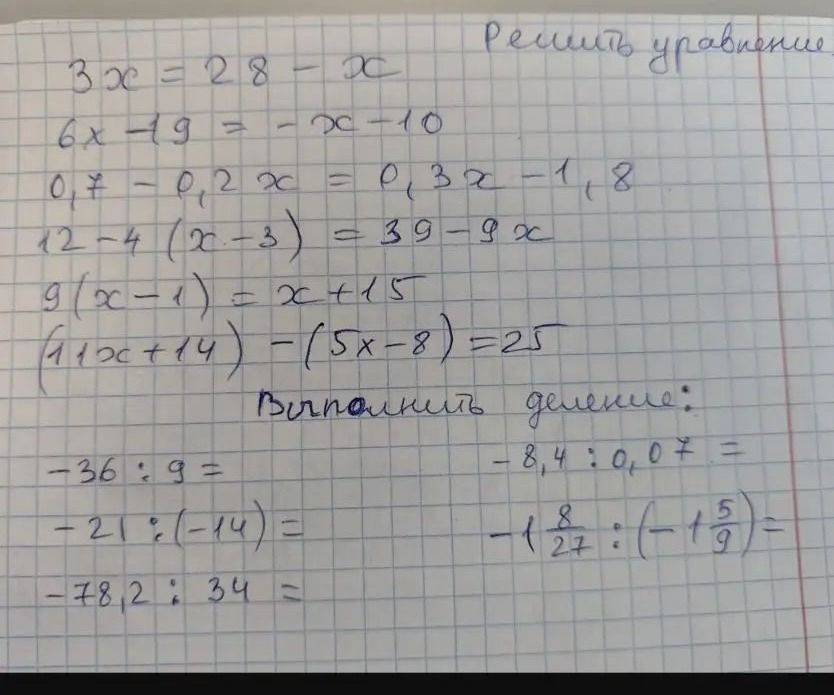 Решить уравнение
3x = 28 - x
6x - 19 = - x - 10
0,7 - 0,2x = 0,3x - 1,8
12 - 4 (x - 3) = 39 - 9x
9(x - 1) = x + 15
(11x + 14) - (5x - 8) = 25
Выполнить деление:
-36 : 9 =
-8,4 : 0,07 =
-21 : (-14) =
-1 8/27 : (-1 5/9) =
-78,2 : 34 =